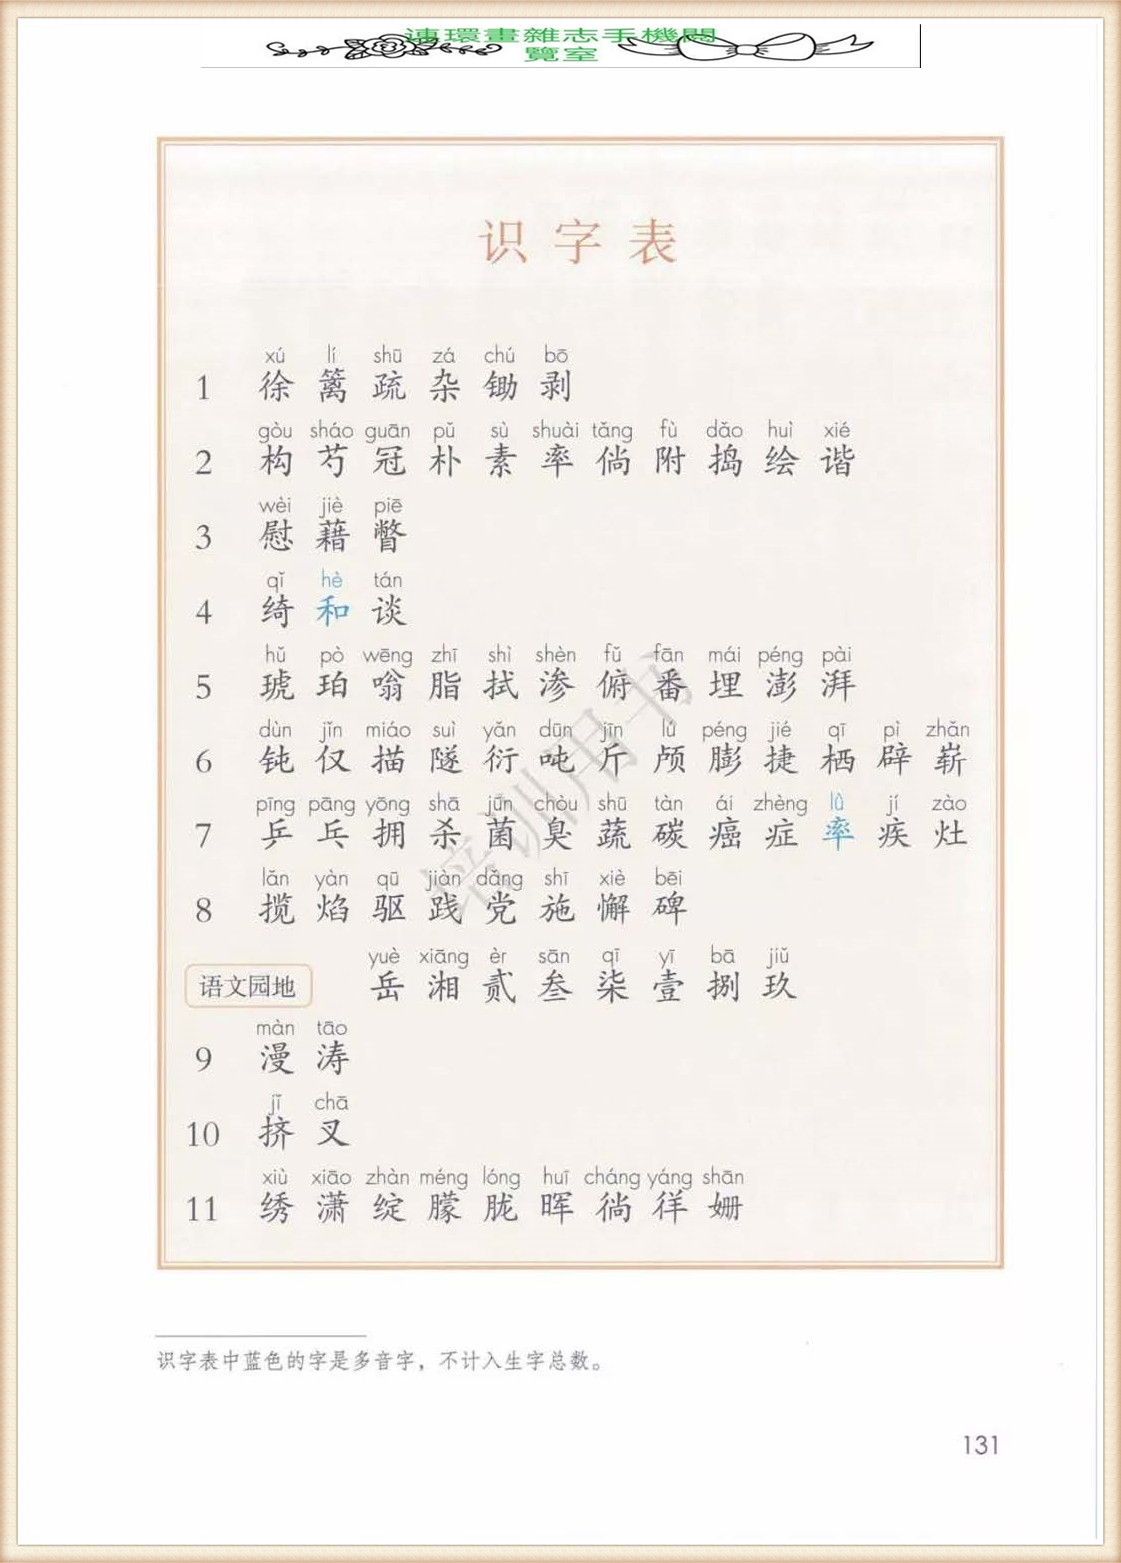 連環畫雜志手機閱
覽室
识字表
xú lí shū zá chú bō
1 徐 篱 疏 杂 锄 剥
gòu sháo guān pǔ sù shuài tǎng fù dǎo huì xié
2 构 芍 冠 朴 素 率 倘 附 捣 绘 谐
wèi jiè piē
3 慰 藉 瞥
qǐ hè tán
4 绮 和 谈
hǔ pò wēng zhī shì shèn fǔ fān mái péng pài
5 琥 珀 嗡 脂 拭 渗 俯 番 埋 澎 湃
dùn jǐn miáo suì yǎn dūn jīn lú péng jié qī pì zhǎn
6 钝 仅 描 隧 衍 吨 斤 颅 膨 捷 栖 辟 崭
pīng pāng yōng shā jūn chòu shū tàn ái zhèng lǜ jí zào
7 乒 乓 拥 杀 菌 臭 蔬 碳 癌 症 率 疾 灶
lǎn yàn qū jiàn dǎng shī xiè bēi
8 揽 焰 驱 践 党 施 懈 碑
yuè xiāng èr sān qī yī bā jiǔ
语文园地 岳 湘 贰 叁 柒 壹 捌 玖
màn tāo
9 漫 涛
jǐ chā
10 挤 叉
xiù xiāo zhàn méng lóng huī cháng yáng shān
11 绣 潇 绽 朦 胧 晖 徜 徉 姗
培训用书
识字表中蓝色的字是多音字，不计入生字总数。
131